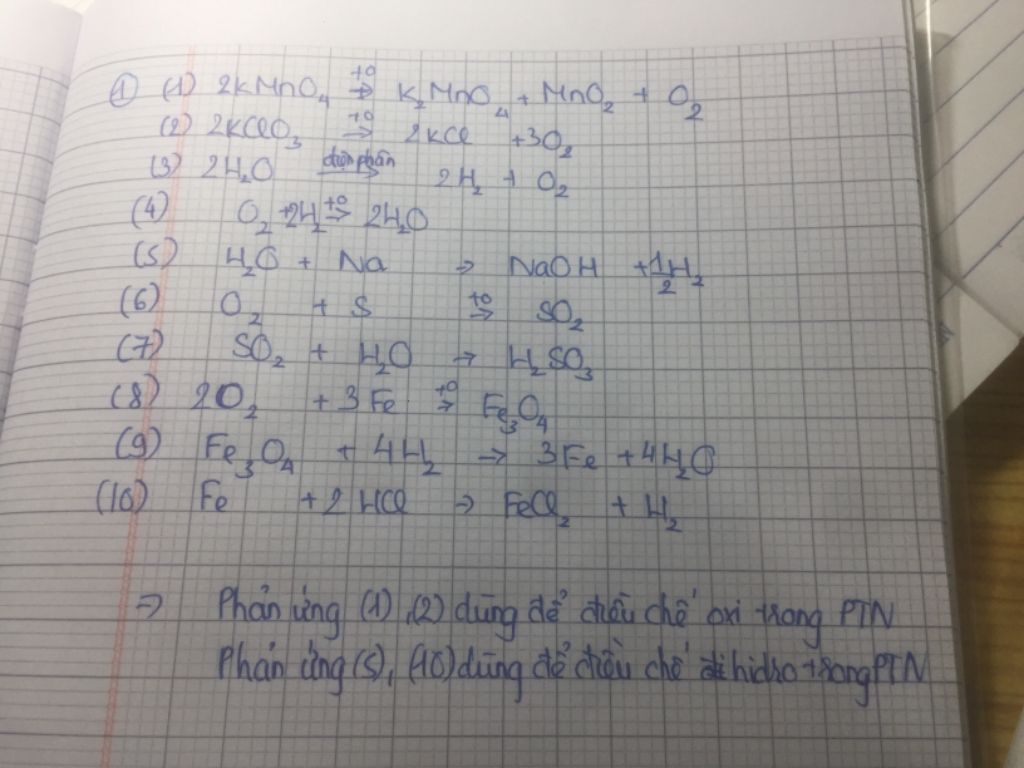 ① (1) 2KMnO₄ →(t⁰) K₂MnO₄ + MnO₂ + O₂
(2) 2KClO₃ →(t⁰) 2KCl + 3O₂
(3) 2H₂O →(điện phân) 2H₂ + O₂
(4) O₂ + 2H₂ →(t⁰) 2H₂O
(5) H₂O + Na → NaOH + 1/2 H₂
(6) O₂ + S →(t⁰) SO₂
(7) SO₂ + H₂O → H₂SO₃
(8) 2O₂ + 3Fe →(t⁰) Fe₃O₄
(9) Fe₃O₄ + 4H₂ → 3Fe + 4H₂O
(10) Fe + 2HCl → FeCl₂ + H₂
⇒ Phản ứng (1), (2) dùng để điều chế oxi trong PTN
Phản ứng (5), (10) dùng để điều chế hidro trong PTN